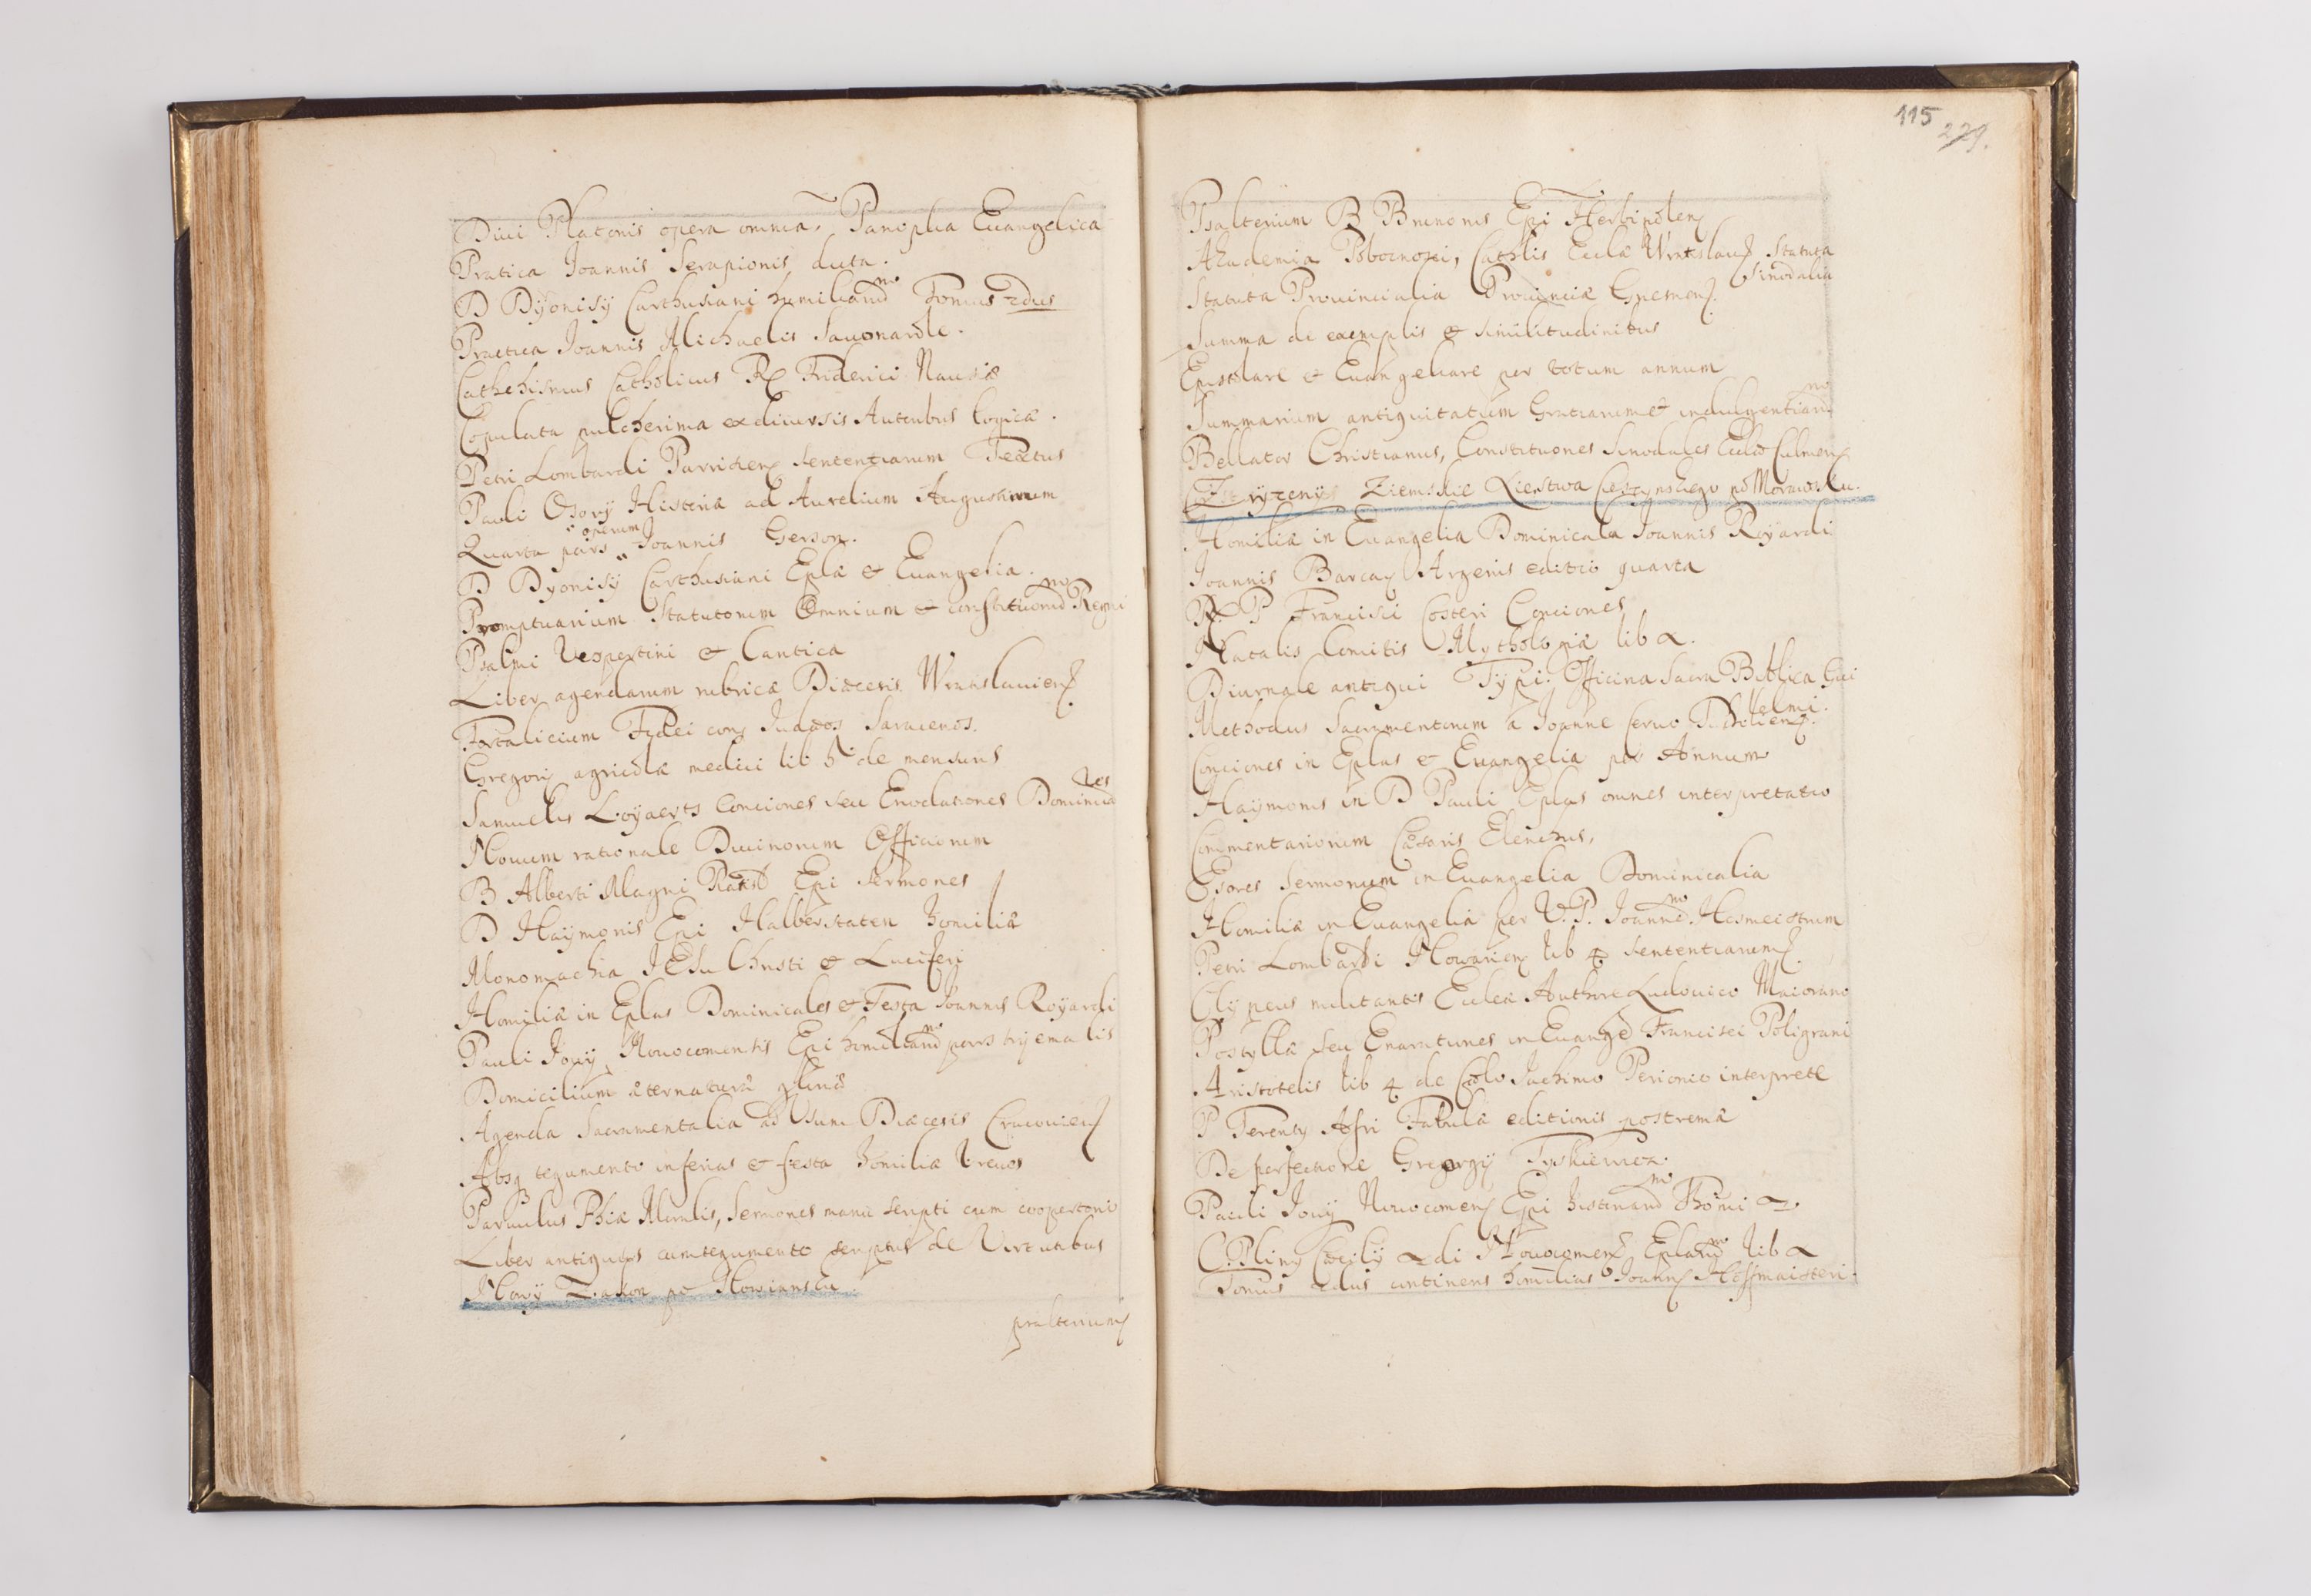 Diui Platonis opera omnia, Panoplia Euangelica
Pratica Joannis Serapionis dicta.
D Dyonisÿ Carthusiani humiliand no Tomus 2dus
Practica Joannis Michaelis Sauonarole.
Cathehismus Catholicus R Friderici Nausiæ
Copulata pulcherima ex diuersis Autoribus logicæ.
Petri Lombardi Parridien sententiarum Textus
Pauli Osorÿ Historiæ ad Aurelium Augustinum
Quarta pars operum Joannis Gerson.
D Dyonisÿ Carthusiani Eplæ & Euangelia.
Promptuarium Statutorum Omnium & constitutionu no Regni
Psalmi Vespertini & Cantica
Liber agendarum rubricæ Diæcesis Wratislauien
Fortalicium Fidei con Judæos Saracenos.
Gregorÿ agricolæ medici lib 5 de mensuris
Samuelis Loÿaerts Conciones seu Enodationes Dominicales
Nouum rationale Diuinorum Officiorum
B Alberti Magni Ratisb Epi sermones
D Haÿmonis Epi Halberstaten homiliæ
Monomachia JESu Christi & Luciferi
Homiliæ in Eplas Dominicales & Festa Joannis Roÿardi
Pauli Jouÿ Nouocomensis Epi homiliand no pars hÿemalis
Domicilium æternatura
Agenda Sacramentalia ad Vsum Diæcesis Cracouien
Absq tegumento inferias & festa homiliæ breues
Paruulus Phiæ Moralis, Sermones manu scripti cum coopertorio
Liber antiquus cum tegumento scriptus de Virtutibus
Nowÿ Zakon po Slowiansku.
psalterium
115
229.
Psalterium B Brunonis Epi Herbipolen
Akademia Poboznosci, Cathlis Eccla Wratislau Statuta
Sinodalia
Statuta Prouincialia Prouinciæ Gnesnen.
Summa de exemplis & similitudinibus
Epistolare & Euangeliare per totum annum
Summarium antiquitatum Gratiarum & indulgentiaru no
Bellator Christianus, Constitutiones Sinodales Ecclæ Culmen
Ziemskie Xiestwa Cieszynskego po Morawsku.
Homiliæ in Euangelia Dominicala Joannis Roÿardi
Joannis Barcaÿ Argenis editio quarta
R. P Francisci Costeri Conciones
Natalis Comitis Mythologiæ lib
Diurnale antiqui Typi. Officina Sacra Biblica Guilelmi.
Methodus Sacramentorum a Joanne Ceruo
Conciones in Eplas & Euangelia per Annum
Haÿmonis in D Pauli Eplas omnes interpretatio
Commentariorum Cæsaris Elenchus,
sermonum in Euangelia Dominicalia
Homiliæ in Euangelia per V. P. Joannem Hosmeistrum
Petri Lombardi Nowarien lib 4 sententiarum
Clÿpeus militantis Ecclæ Authore Ludouico Maiorano
Postylla seu Enarationes in Euange Francisci Poligrani
Aristotelis lib 4 de Cælo Joachimo Perionio interprete
P Terentÿ Afri Fabulæ editionis postremæ
De perfectione Gregorÿ Tyskiewicz.
Pauli Jouÿ Nouocomen Epi historiand no Thomi 2.
C Plinÿ Cæcilÿ 2di Nouocomen Eplaru no lib
Tomus 2dus continens homilias Joann Hoffmaisteri.